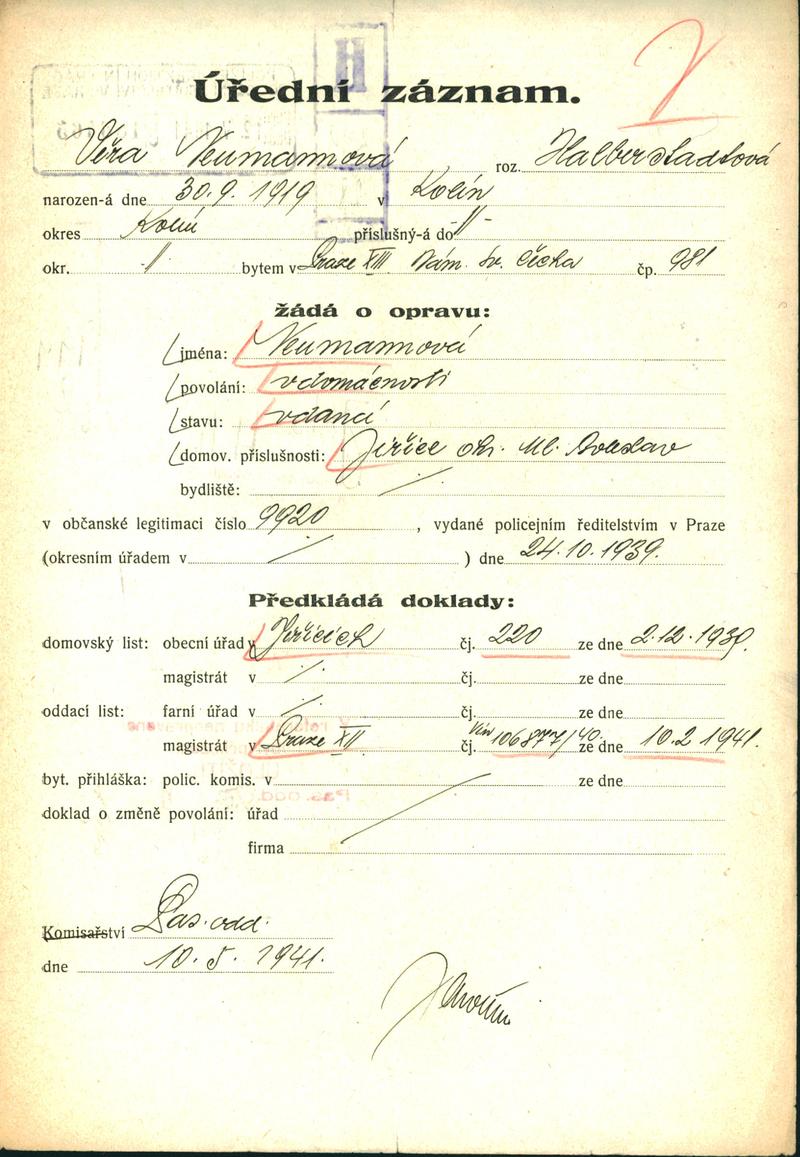 H
Úřední záznam.
Věra Neumannová roz. Halberstadtová
narozen-á dne 30.9.1919 v Kolín
okres Kolín příslušný-á do -"-
okr. -"- bytem v Praze XIII Nám. sv. Čecha čp. 981
žádá o opravu:
jména: Neumannová
povolání: v domácnosti
stavu: vdaná
domov. příslušnosti: Jiřice okr. Ml. Boleslav
bydliště: /
v občanské legitimaci číslo 9920, vydané policejním ředitelstvím v Praze
(okresním úřadem v / ) dne 24.10.1939.
Předkládá doklady:
domovský list: obecní úřad v Jiřicích čj. 220 ze dne 2.12.1939.
magistrát v / čj. ze dne
oddací list: farní úřad v / čj. ze dne
magistrát v Praze XII čj. 106877/40. ze dne 10.2 1941.
byt. přihláška: polic. komis. v ze dne
doklad o změně povolání: úřad
firma
Komisařství Pas. odd.
dne 10.5.1941.